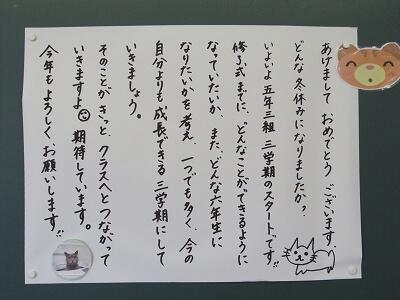 あけまして おめでとう ございます。
どんな 冬休みに なりましたか?
いよいよ 五年三組 三学期のスタートです!!
修了式までに、どんなことができるように
なっていたいか、また、どんな六年生に
なりたいかを考え、一つでも多く、今の
自分よりも 成長できる 三学期にして
いきましょう。
そのことが きっと クラスへと つながって
いきますよ 期待しています。
今年も よろしく お願いします!!